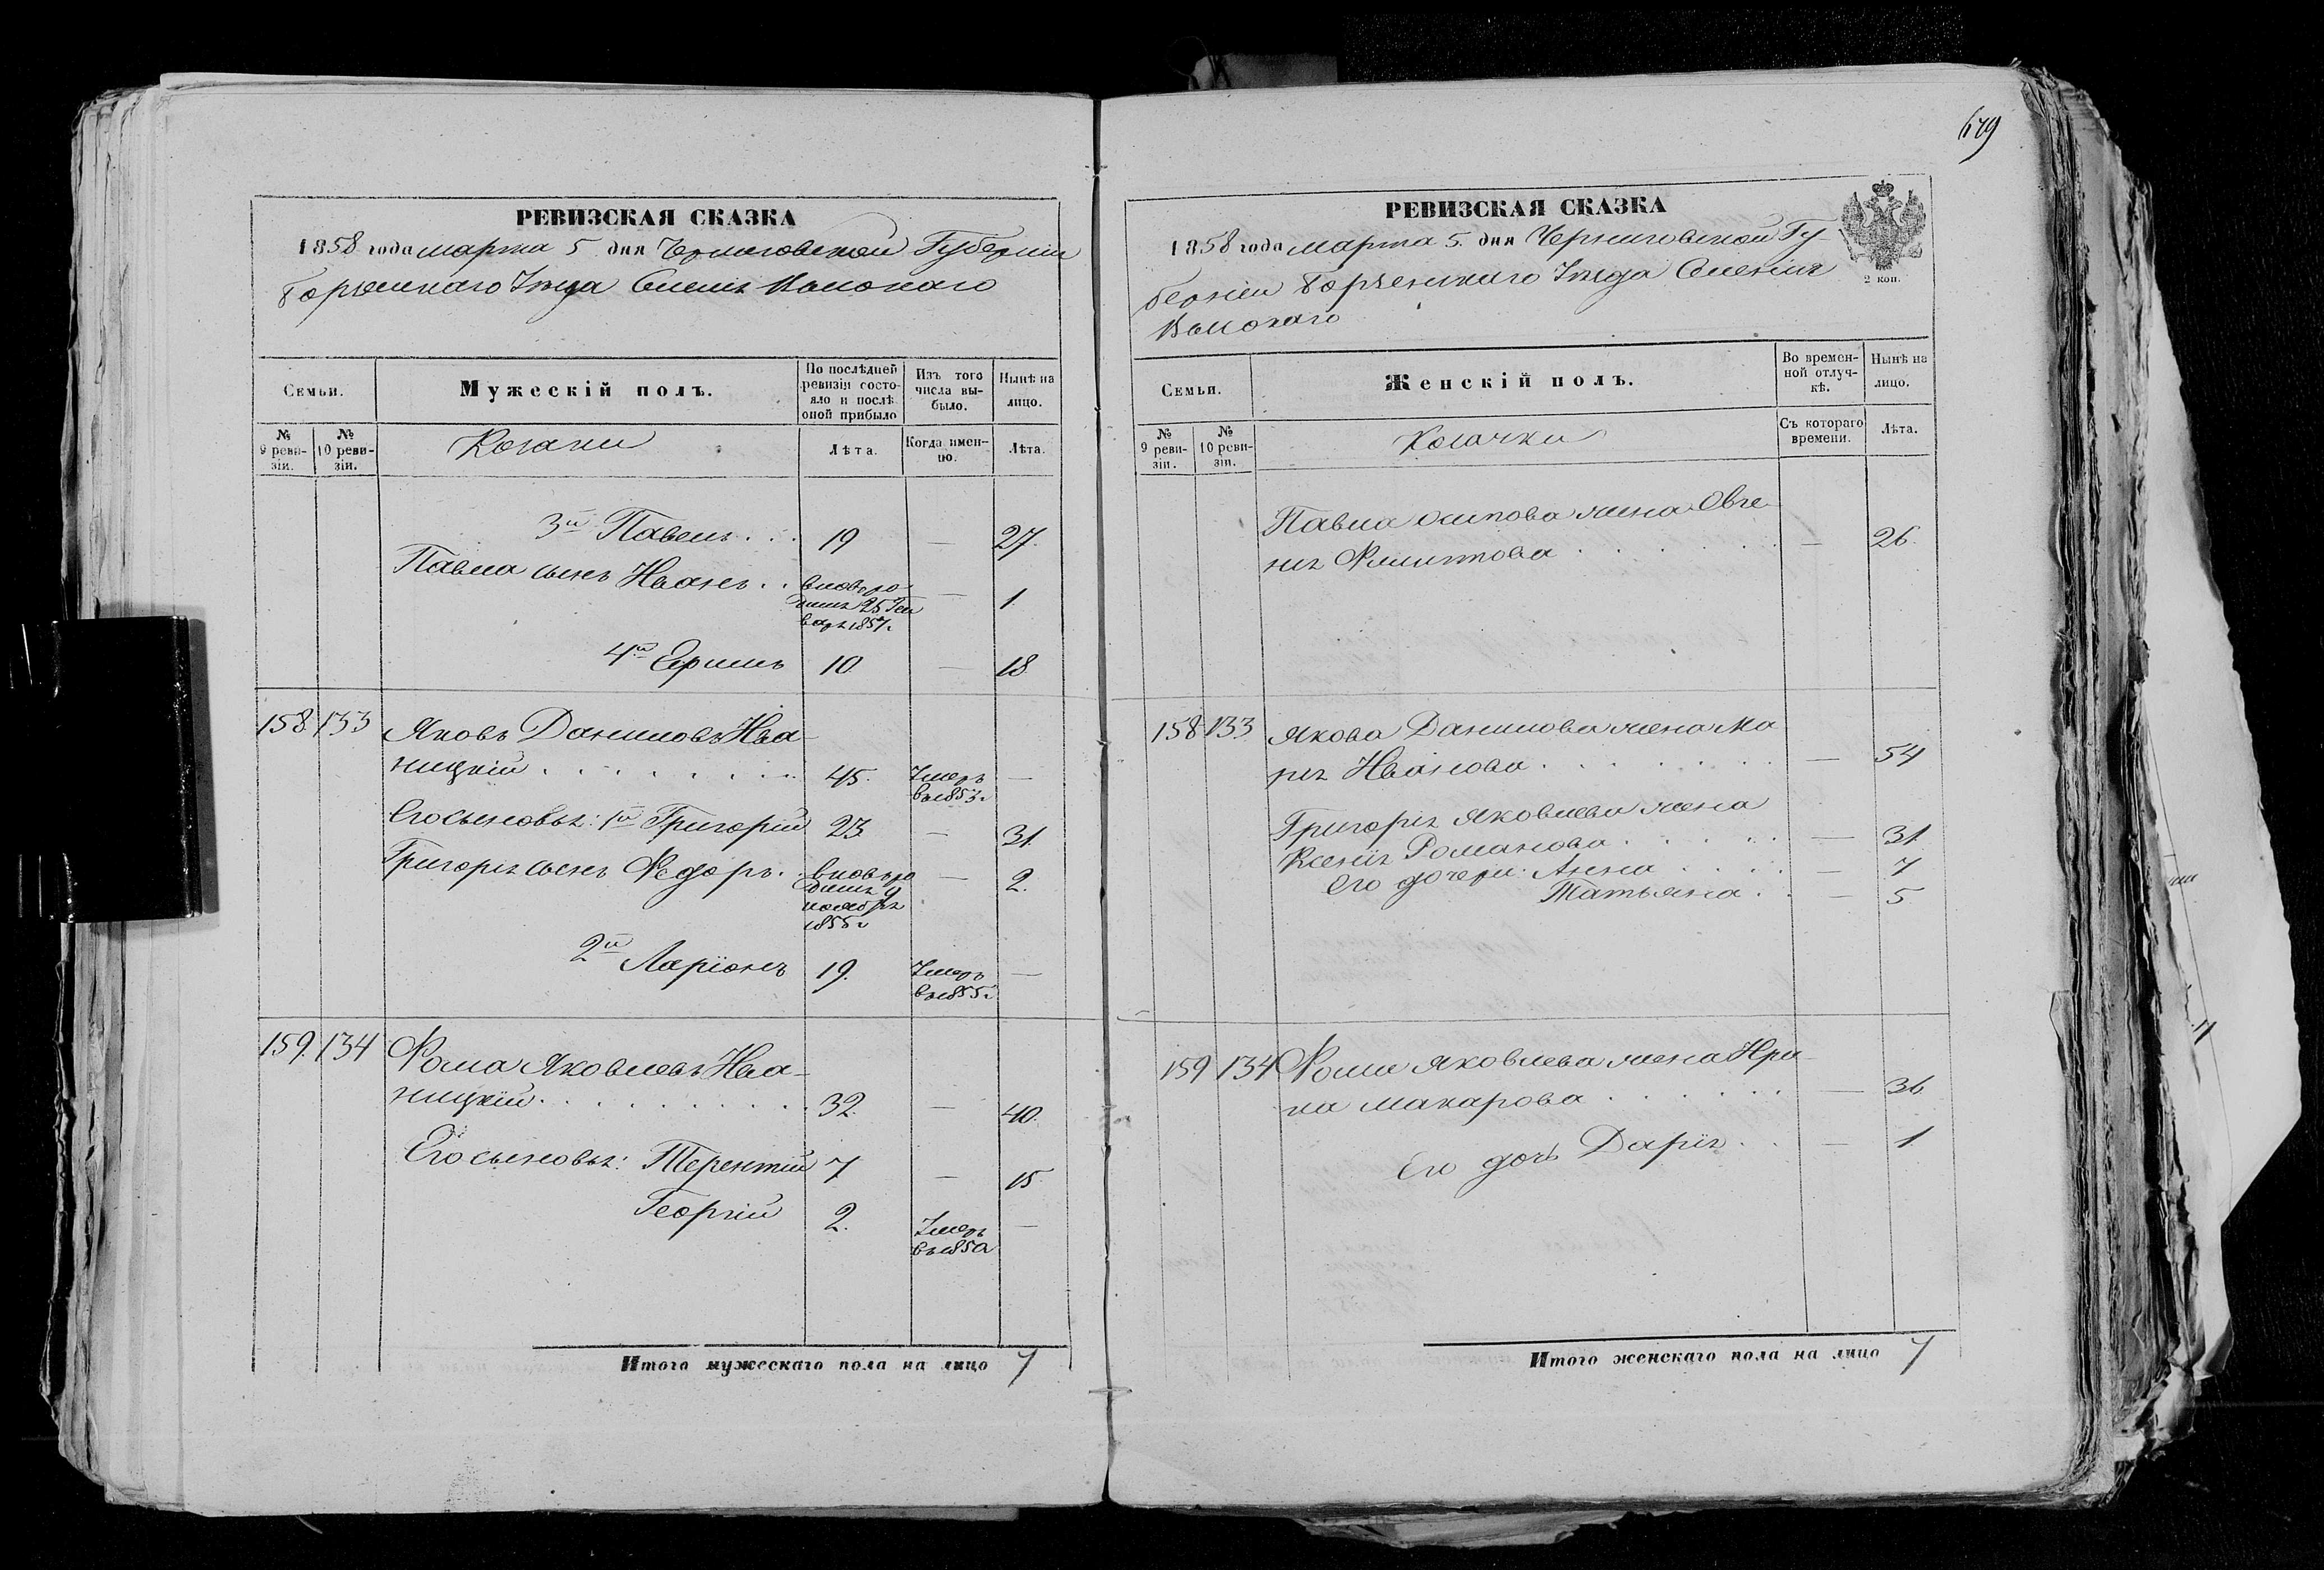 679
РЕВИЗСКАЯ СКАЗКА
1858 года марта 5 дня Черниговской Губерніи
Борзенскаго Уезда Селенія Высокаго
Семьи.
Мужескій полъ.
По послѣдней ревизіи состояло и послѣ оной прибыло
Изъ того числа выбыло.
Нынѣ на лицо.
№ 9 ревизіи.
№ 10 ревизіи.
Козаки
Лѣта.
Когда именно.
Лѣта.
3й Павелъ . . . 19 — 27.
Павла сынъ Иванъ . . вновь ро- — 1.
25 Ген
варя 1857г
4й Ефимъ 10 — 18
158 133 Яковъ Даниловъ Ива-
ницкій . . . . . . . . 45. Умеръ —
въ 1853г
Его сыновья: 1й Григорій 23 — 31.
Григорія сынъ Федоръ . . вновь ро — 2.
дился 9
ноября
1855г
2й Ларіонъ 19. Умеръ —
въ 1855г
159. 134 Фома Яковлевъ Ива-
ницкій . . . . . . . . . 32. — 40.
Его сыновья: Терентій 7 — 15.
Георгій 2. Умеръ —
въ 1850
Итого мужескаго пола на лицо 7
РЕВИЗСКАЯ СКАЗКА
1858 года марта 5. дня Черниговской Гу-
берніи Борзенскаго Уезда Селенія
Высокаго
2 коп.
Семьи.
Женскій полъ.
Во временной отлучкѣ.
Нынѣ на лицо.
№ 9 ревизіи.
№ 10 ревизіи.
Козачки
Съ котораго времени.
Лѣта.
Павла Осипова жена Овге
нія Филипова . . . . . . — 26.
158 133 Якова Данилова жена Ма
рія Иванова . . . . . . . — 54
Григорія Яковлева жена
Ксенія Романова . . . . . — 31.
Его дочери: Анна . . . . — 7
Татьяна . . — 5
159 134 Фомы Яковлева жена Ири-
на Макарова . . . . . . — 36
Его дочь Дарія . . — 1
Итого женскаго пола на лицо 7